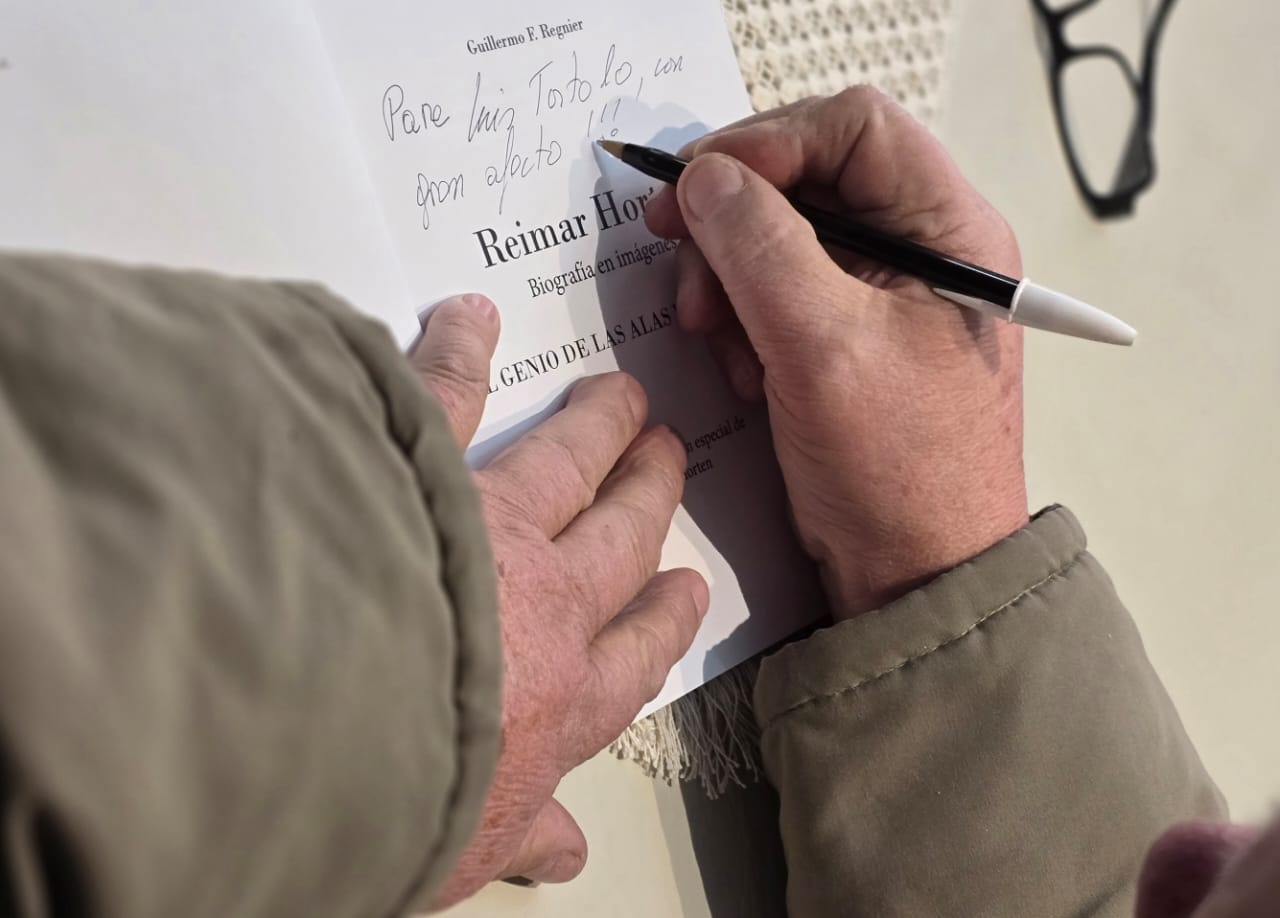 Guillermo F. Regnier
Para Luis Tortolo, con
gran afecto !!!
Reimar Hor
Biografía en imágenes
L GENIO DE LAS ALAS
n especial de
orten